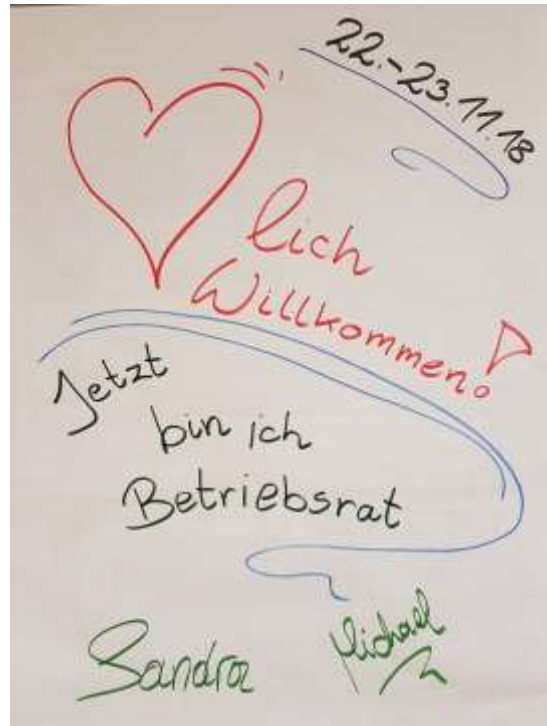 22.-23.11.18
lich
Willkommen!
Jetzt
bin ich
Betriebsrat
Sandra
Michael